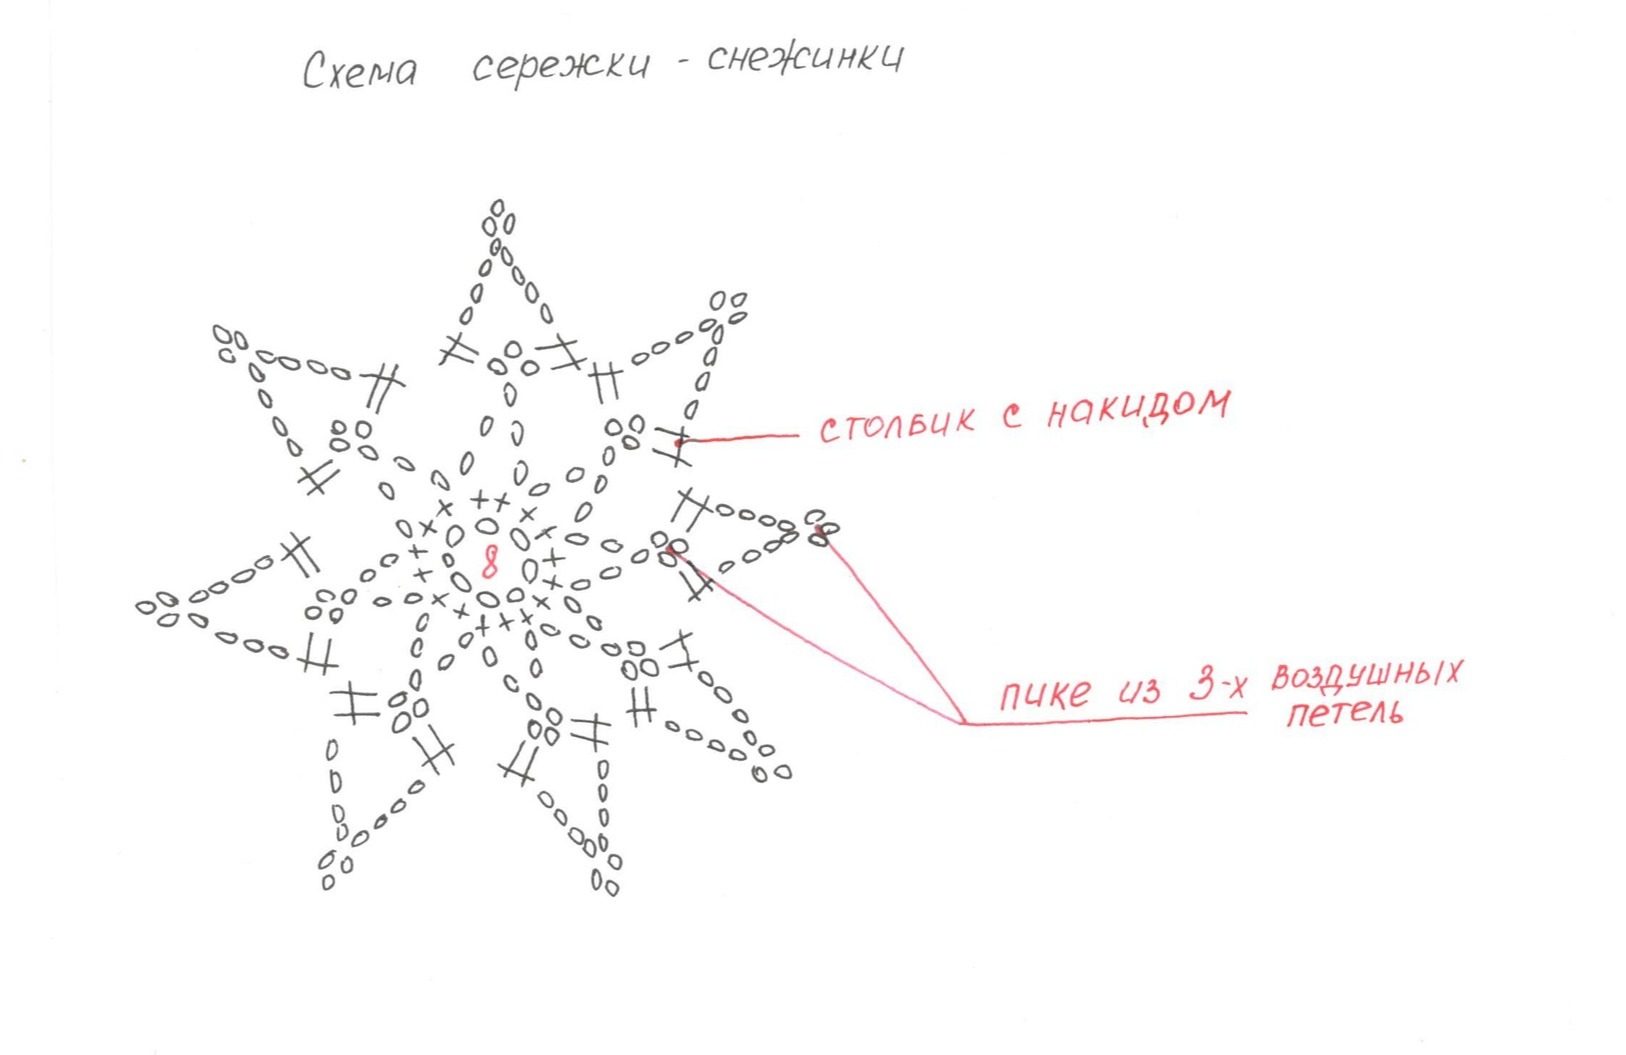 Схема сережки - снежинки
столбик с накидом
8
пике из 3-х воздушных
петель